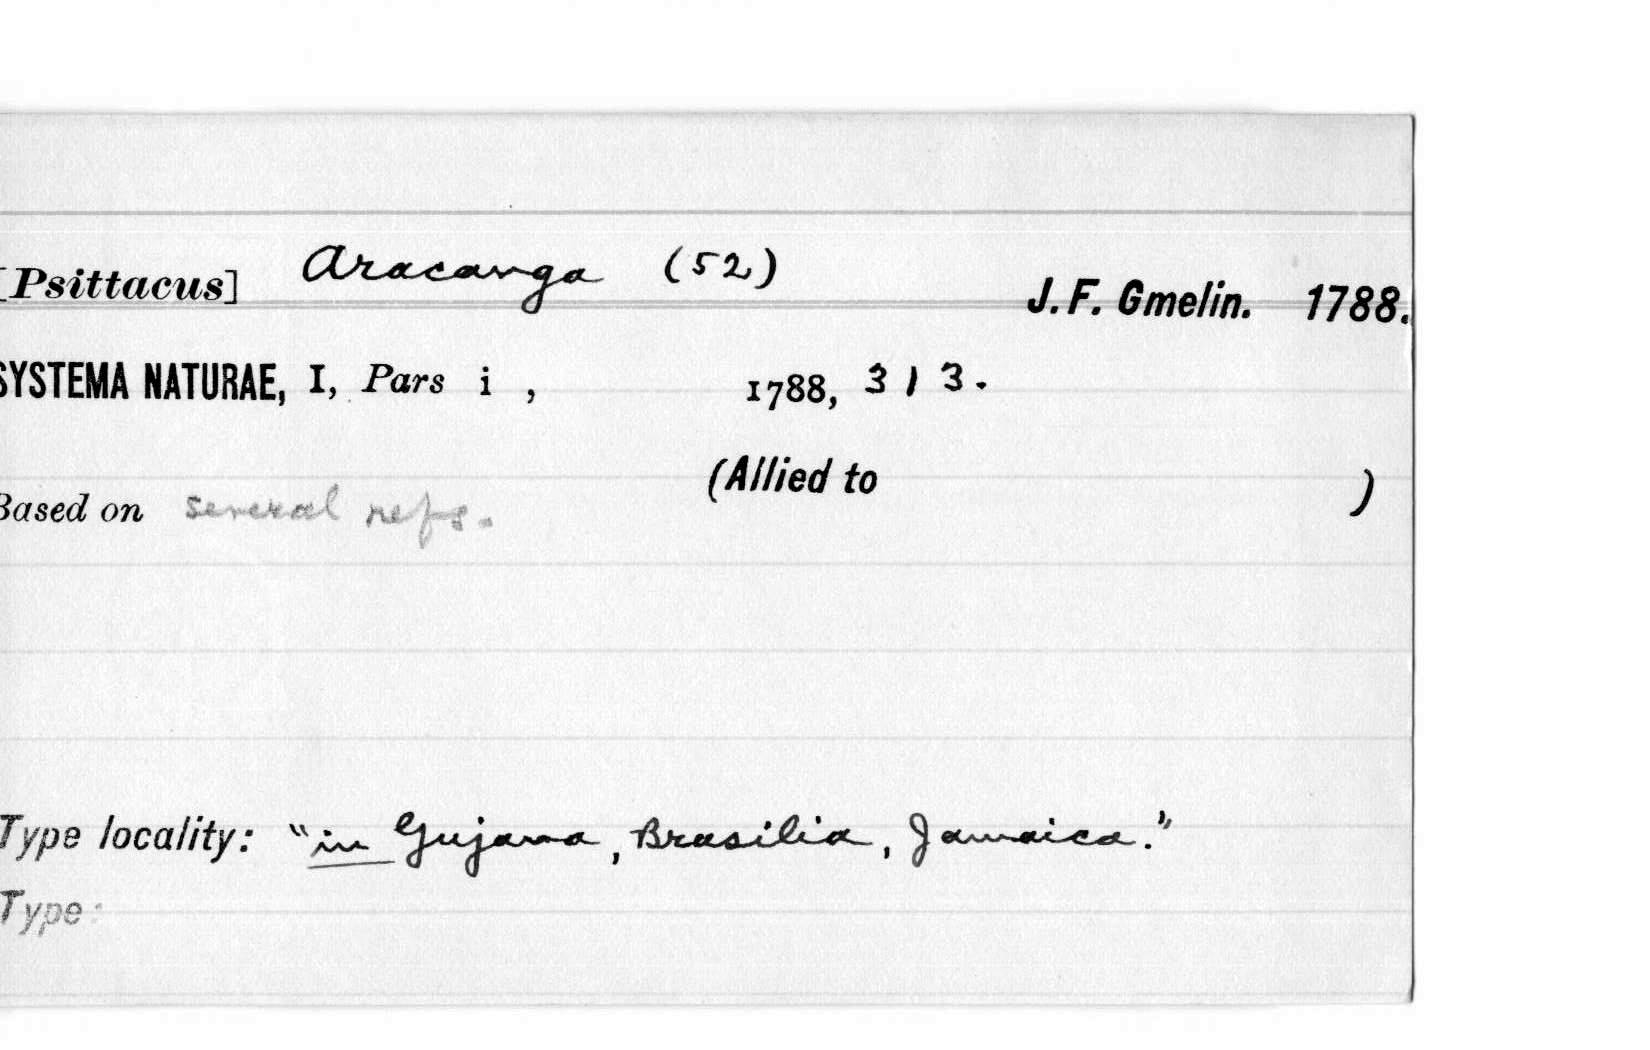 [Psittacus] Aracanga (52) J. F. Gmelin. 1788.
SYSTEMA NATURAE, I, Pars i , 1788, 313.
(Allied to )
Based on several refs.
Type locality: "in Gujana, Brasilia, Jamaica."
Type: